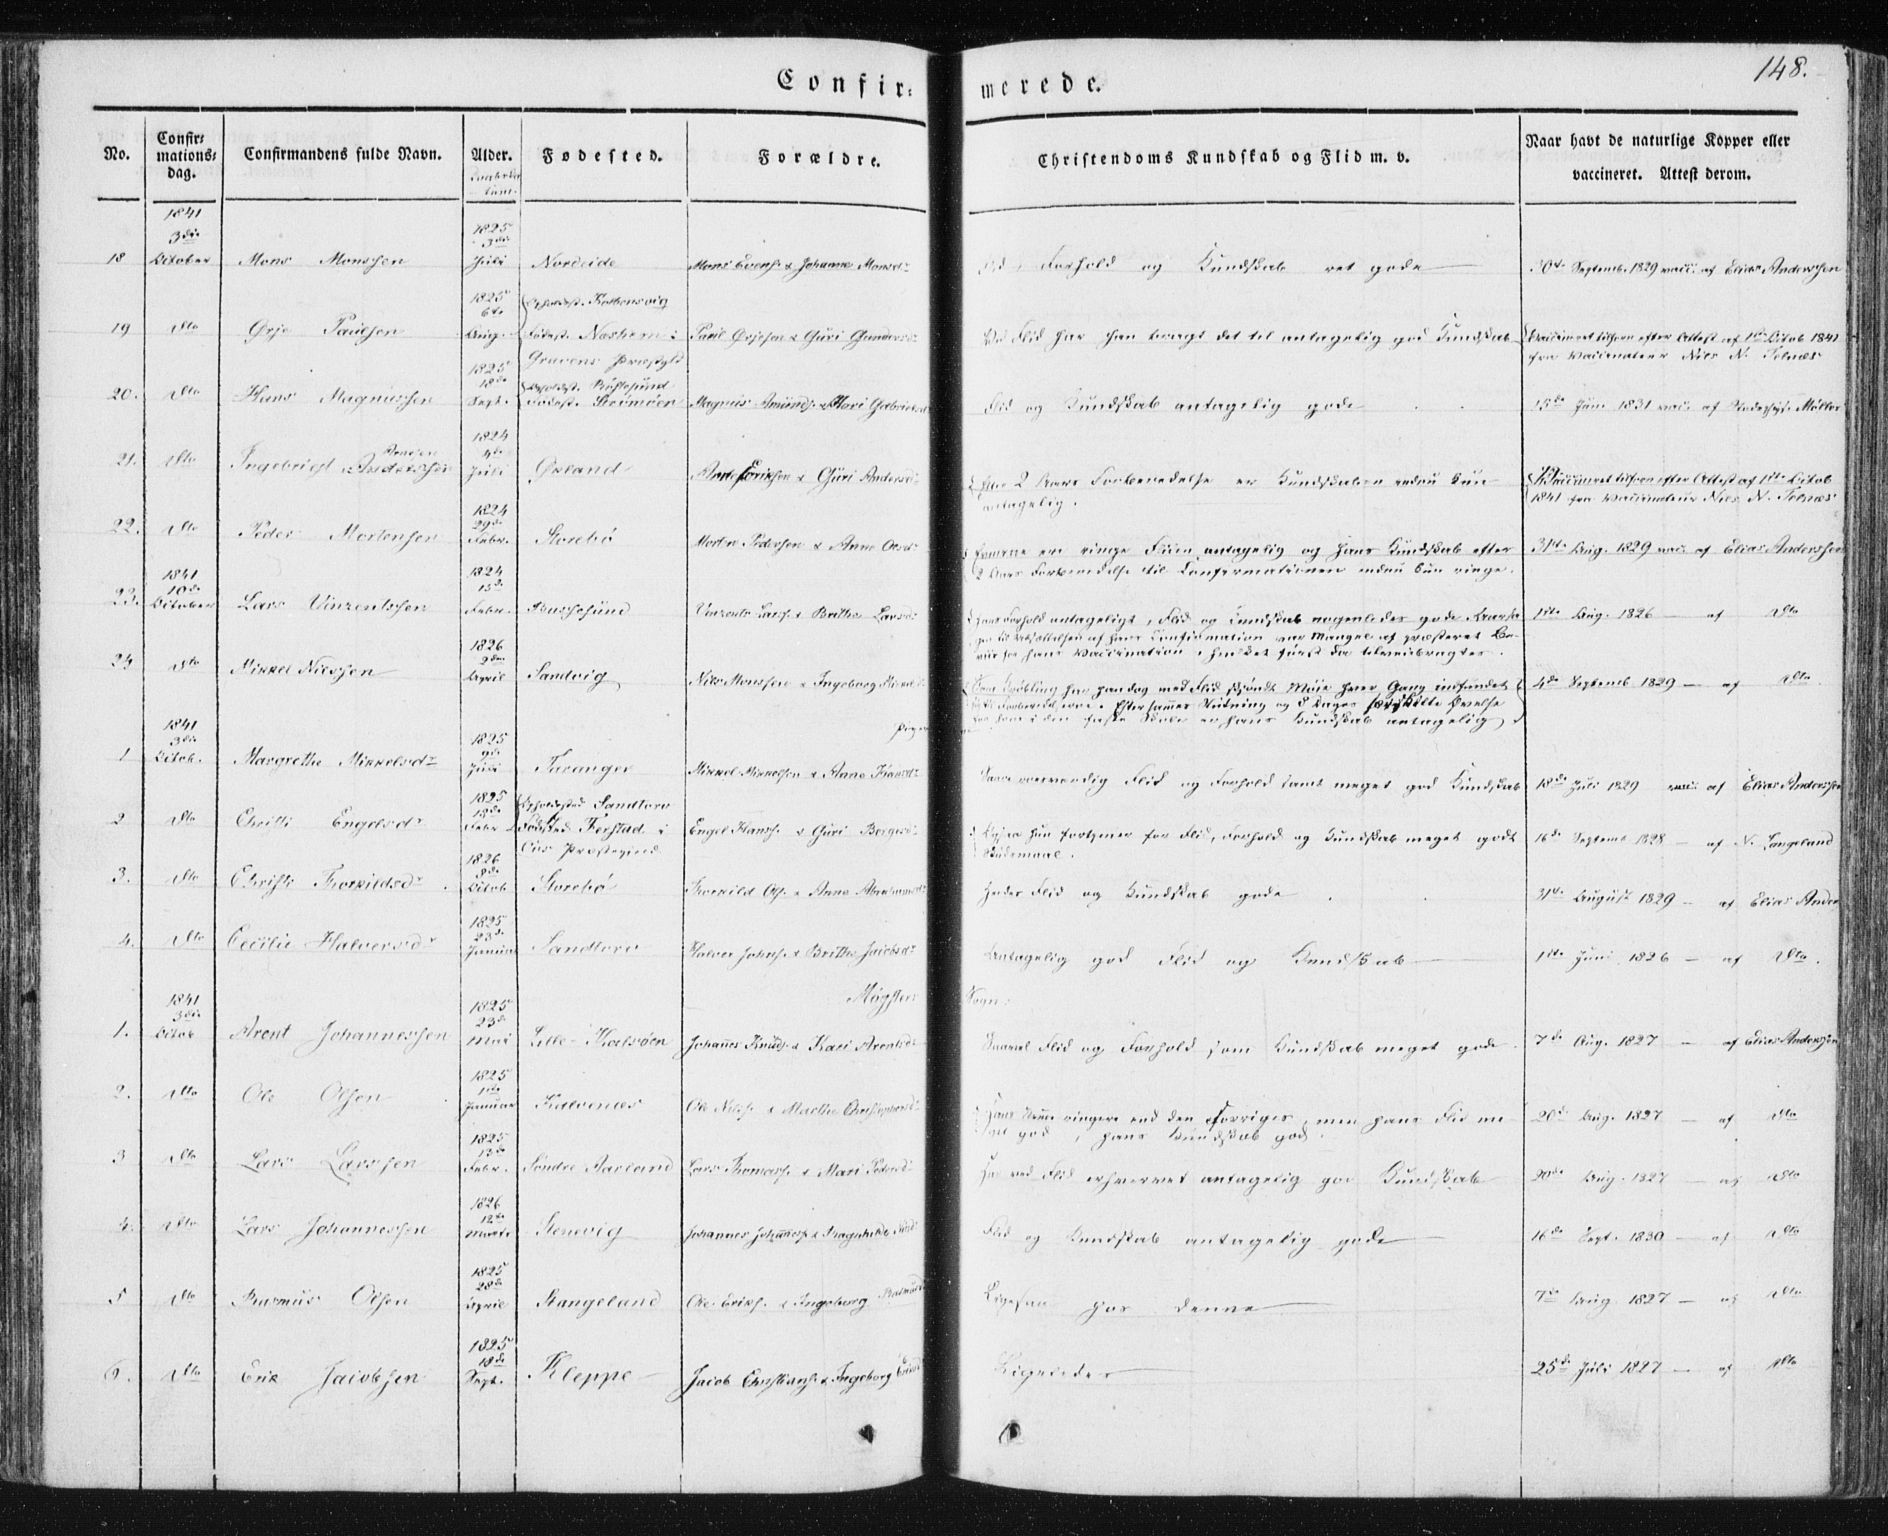 148.
Confir: merede.
No.
Confir:
mations:
dag.
Confirmandens fulde Navn.
Alder.
Fødested.
Forældre.
Christendoms Kundskab og Flid m. v.
Naar havt de naturlige Kopper eller
vaccineret. Attest derom.
1841
3die
18 October Mons Monssen 1825 3die Juli Nordeide Mons Evens. & Johanne Monsdr Forhold og Kundskab ret gode 30te Septemb. 1829 vacc. af Elias Anderssen
19 Dto Ørje Paulsen 1825 6te Aug. Opholdst. Kolbensvig
Fødest. Nesheim i
Gravens Præstgld Paul Ørjesen & Guri Gundersdr Ved Flid har han bragt det til antagelig god Kundskab Vaccineret tilforn efter Attest af 1ste Octob 1841
fra Vaccinateur Nils N. Tolnæs
20. Dto Hans Magnussen 1825 18de Sept. Fødest. Strømøen Magnus Amunds. & Mari Gabrielsd Flid og Kundskab antagelig gode 15de Juni 1831 vac. af Møller
21. Dto Ingebrigt Anderssen
Arnesen 1824 4de Juli Øvland Arne Eriksen & Guri Andersdr Efter 2 Aars Forberedelse er Kundskaben endnu kun
antagelig. Vaccineret tilforn efter Attest af 1ste Octob
1841 fra Vaccinateur Nils N. Tolnæs
22. Dto Peder Mortensen 1824 29de Febr. Storebø Morten Pedersen & Anne Olsdr Evnerne ere ringe Flien antagelig og hans Kundskab efter
2 Aars Forberedelse til Confirmationen endnu kun ringe. 31te Aug. 1829 vac. af Elias Anderssen
1841
10de
23. October Lars Vinzentssen 1824 15de Febr. Bussesund Vinzents Larss. & Brithe Larsdr Hans Forhold antageligt, Flid og Kundskab nogenledes gode
til Udsættelsen af hans Confirmation var Mangel af præsteret Be-
viis for hans Vaccination, hvilket først da tilveiebragtes. 1ste Aug. 1826 — af Dto
24 Dto Mikkel Nilssen 1826 2den April Sandvig Nils Monssen & Ingeborg Som Svøbling har han dog med Flid skjøndt Møie hver Gang indfundet
Efter sammes Slutning og 8 Dages særskilte Øvelse
i den faste Skole er hans Kundskab antagelig 4de Septemb 1829 — af Dto.
Piger
1841
3die
1 Octob. Margrethe Mikkelsdr 1825 9de Juli Taranger Mikkel Mikkelsen & Anne Hansdr Flid og Forhold samt meget god Kundskab 18de Juli 1829 vacc. af Elias Anderssen
2 Dto Christi Engelsdr 1825 13de Febr Opholdssted Sandtorv
Fødested Ferstad i
Ous Præstegjeld Engel Hanss. & Guri Børgesdr hun fortjener for Flid, Forhold og Kundskab meget godt
Skudsmaal. 16de Septemb 1828 — af N. Langeland
3. Dto Christi Thorkildsdr 1826 8de Octob Storebø Thorkild Ols. & Anne Abrahamsdr Hendes Flid og Kundskab gode 31te August 1829 — af Elias Ander
4. Dto Cecilie Halversdr 1825 23de Januar Sandtorv Halver Johns. & Brithe Jacobsdr Antagelig god Flid og Kundskab 1ste Juni 1826 — af Dto.
Møgster Sogn:
1841
3die
1. Octob Arent Johannessen 1825 23de Mai Lille-Kalsøen Johannes Knuds. & Kari Arentsdr Saavel Flid og Forhold som Kundskab meget gode. 7de Aug. 1827 — af Elias Anderssen
2. Dto Ole Olsen 1825 1ste Januar Kalvenæs Ole Nilss. & Marthe Christophersdr Hans Evne ringere end den Forriges, men hans Flid me-
get god, hans Kundskab god. 20de Aug. 1827 — af Dto
3 Dto Lars Larssen 1825 13de Febr. Søndre Aarland Lars Thomass. & Mari Pedersd Har ved Flid erhvervet antagelig god Kundskab 20de Aug. 1827 — af Dto
4. Dto Lars Johannessen 1826 12te Marts Stenevig Johannes Johanness. & Ragnhilde Flid og Kundskab antagelig gode 16de Sept. 1830 — af Dto
5 Dto Rasmus Olsen 1825 28de April Stangeland Ole Eriks. & Ingeborg Rasmusd Ligesaa hos denne 7de Aug 1827 — af Dto
6. Dto Erik Jacobsen 1825 18de Sept. Kleppe Jacob Christians. & Ingeborg Ligeledes 25de Juli 1827 — af Dto